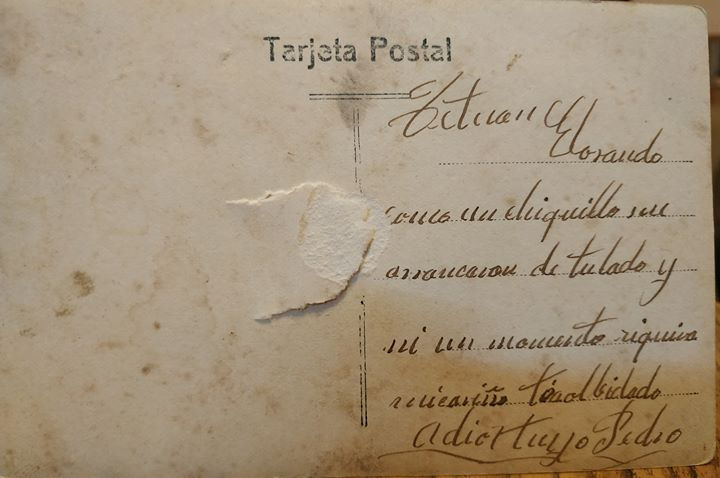 Tarjeta Postal
Tetuan
Llorando
como un chiquillo me
arrancaron de tulado y
ni un momento siquira
micariño tiaolbidado
adios tuyo Pedro